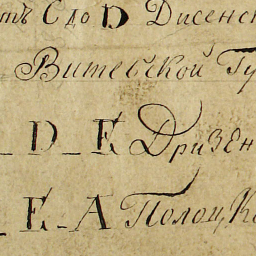 тъ Сдо D Дисенс
Витебской Гу
_ D _ E Дризен
_ E - A Полоцк